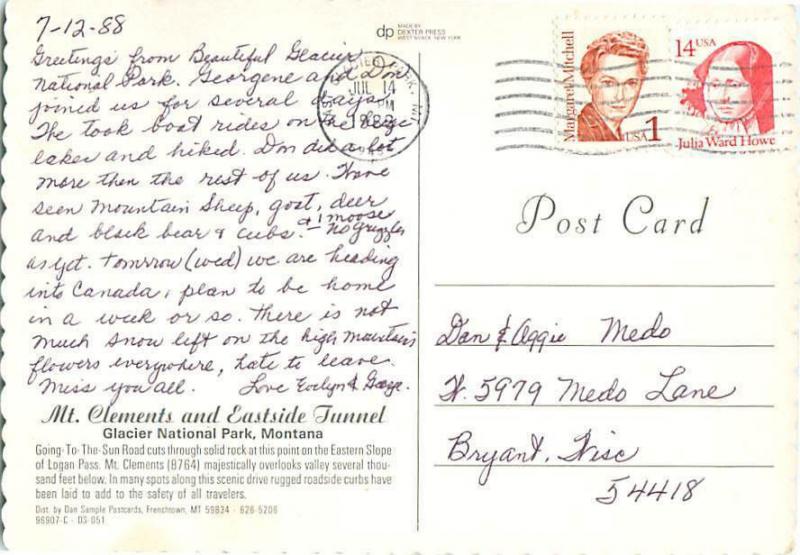 7-12-88
Greetings from Beautiful Glacier
National Park. Georgene and Don
joined us for several days.
The took boat rides on the large
lakes and hiked. Don did a lot
more then the rest of us. Have
seen Mountain Sheep, goat, deer
& 1 moose
and black bear & cubs. — no grizzlys
as yet. Tomrrow (wed) we are heading
into Canada, plan to be home
in a week or so. There is not
much snow left on the high mountains
flowers everywhere, hate to leave.
Miss you all. Love Evelyn & George.
Mt. Clements and Eastside Tunnel
Glacier National Park, Montana
Going-To-The-Sun Road cuts through solid rock at this point on the Eastern Slope
of Logan Pass. Mt. Clements (8764) majestically overlooks valley several thou-
sand feet below. In many spots along this scenic drive rugged roadside curbs have
been laid to add to the safety of all travelers.
Dist. by Dan Sample Postcards, Frenchtown, MT 59834 - 626-5206
96907-C - DS-051
dp MADE BY
DEXTER PRESS
WEST NYACK, NEW YORK
JUL 14
PM
1988
Margaret Mitchell
USA 1
14 USA
Julia Ward Howe
Post Card
Dan & Aggie Medo
W. 5979 Medo Lane
Bryant, Wisc
54418